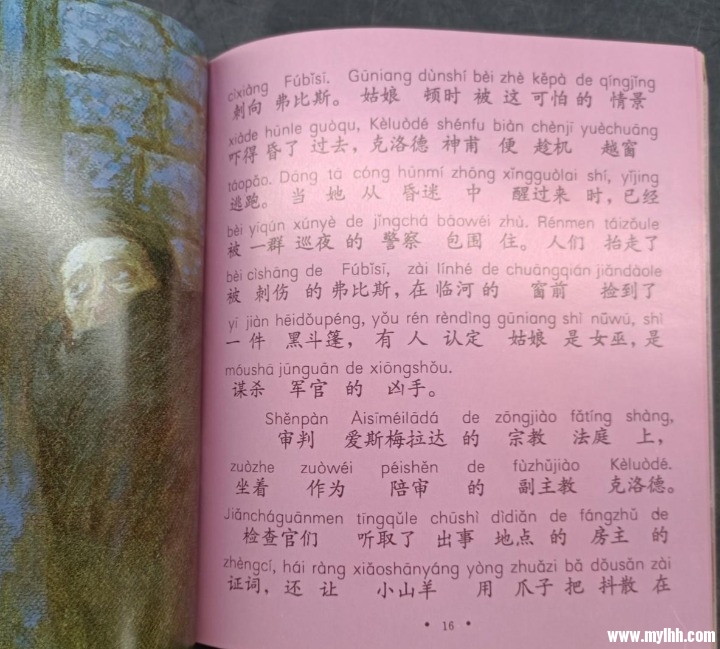 cìxiàng Fúbǐsī. Gūniang dùnshí bèi zhè kěpà de qíngjǐng
刺向 弗比斯。 姑娘 顿时 被 这 可怕 的 情景
xiàde hūnle guòqu, Kèluòdé shénfu biàn chènjī yuèchuāng
吓得 昏了 过去, 克洛德 神甫 便 趁机 越窗
táopǎo. Dāng tā cóng hūnmí zhōng xǐngguòlai shí, yǐjing
逃跑。 当 她 从 昏迷 中 醒过来 时, 已经
bèi yīqún xúnyè de jǐngchá bāowéi zhù. Rénmen táizǒule
被 一群 巡夜 的 警察 包围 住。 人们 抬走了
bèi cìshāng de Fúbǐsī, zài línhé de chuāngqián jiǎndàole
被 刺伤 的 弗比斯, 在 临河 的 窗前 捡到了
yī jiàn hēidǒupéng, yǒu rén rèndìng gūniang shì nǚwū, shì
一 件 黑斗篷, 有 人 认定 姑娘 是 女巫, 是
móushā jūnguān de xiōngshǒu.
谋杀 军官 的 凶手。
Shěnpàn Àisīméilādá de zōngjiào fǎtíng shàng,
审判 爱斯梅拉达 的 宗教 法庭 上,
zuòzhe zuòwéi péishěn de fùzhǔjiào Kèluòdé.
坐着 作为 陪审 的 副主教 克洛德。
Jiǎncháguānmen tīngqǔle chūshì dìdiǎn de fángzhǔ de
检查官们 听取了 出事 地点 的 房主 的
zhèngcí, hái ràng xiǎoshānyáng yòng zhuǎzi bǎ dǒusǎn zài
证词, 还 让 小山羊 用 爪子 把 抖散 在
• 16 •
www.mylhh.com